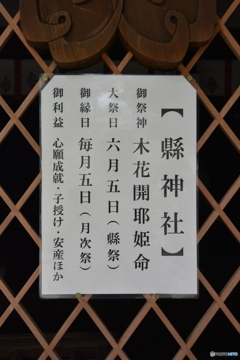 【縣神社】
御祭神 木花開耶姫命
大祭日 六月五日(縣祭)
御縁日 毎月五日(月次祭)
御利益 心願成就・子授け・安産ほか